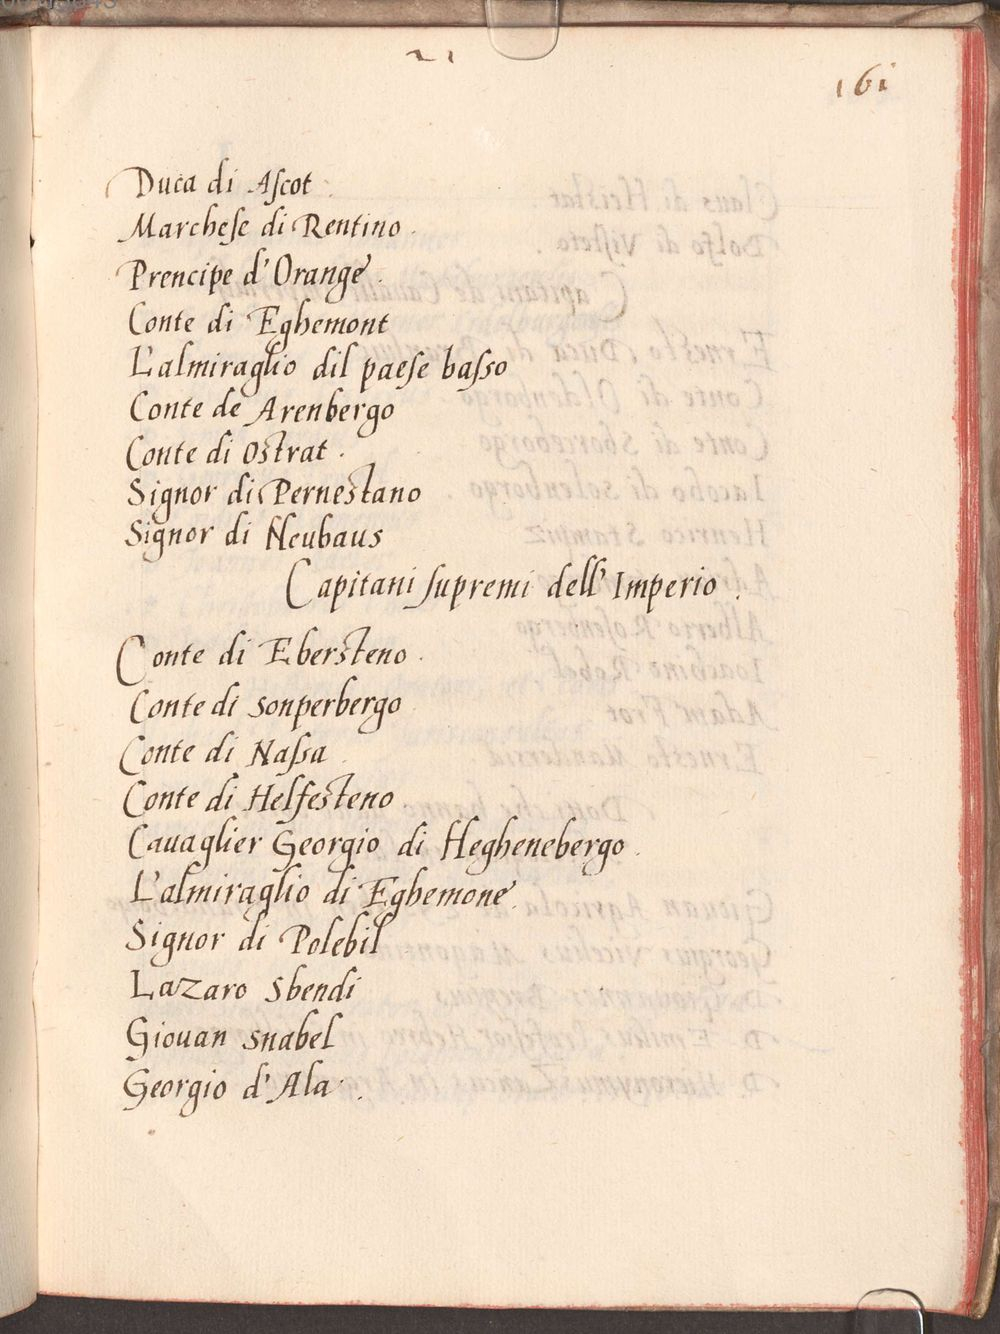 21
161
Duca di Ascot
Marchese di Rentino.
Prencipe d'Orange.
Conte di Eghemont
L'almiraglio dil paese basso
Conte de Arenbergo
Conte di Ostrat.
Signor di Pernestano
Signor di Neubaus
Capitani supremi dell'Imperio.
Conte di Ebersteno.
Conte di Sonperbergo
Conte di Nassa.
Conte di Helfesteno
Cauaglier Georgio di Heghenebergo.
L'almiraglio di Eghemone.
Signor di Polebil
Lazaro Sbendi
Giouan snabel
Georgio d'Ala.